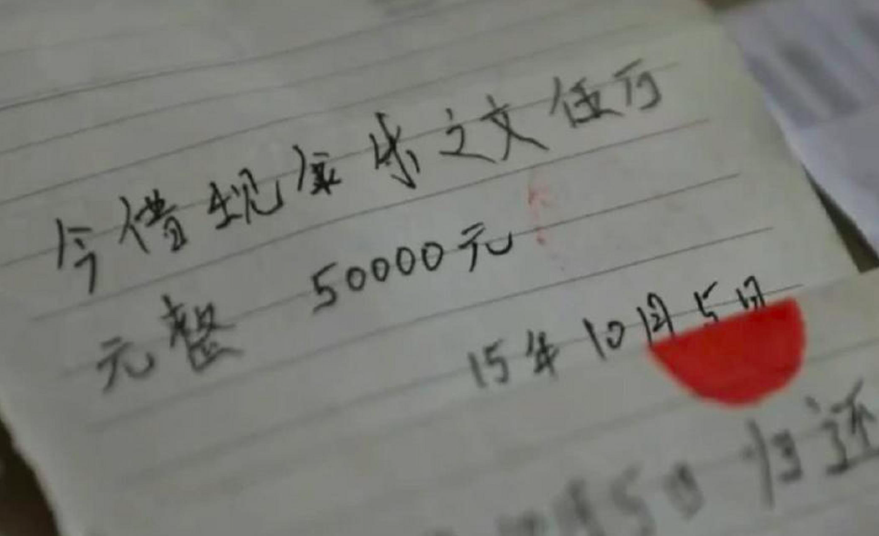 今借现金朱之文伍万
元整 50000元
15年10月5日
月5日归还